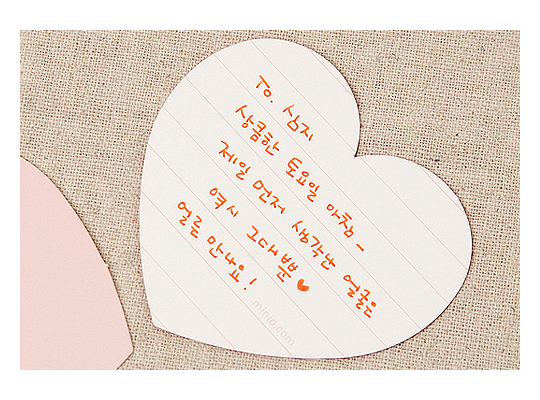 To. 심지
상큼한 토요일 아침-
제일 먼저 생각난 얼굴은
역시 그대뿐♥
얼른 만나유!
minjo.com